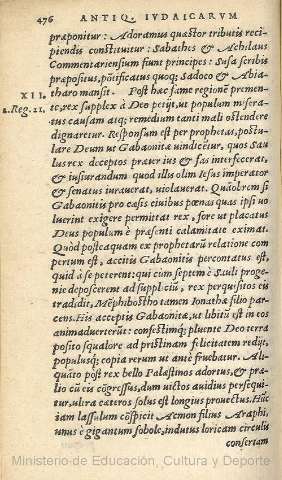 476 ANTIQ. IVDAICARVM
præponitur: Adoramus quæstor tributis reci-
piendis constituitur: Sabathes & Achilaus
Commentariensium fiunt principes: Susa scribis
præpositus, põtificatus quoq; Sadoco & Abia-
tharo mansit. Post hæc fame regionē premen-
XII.
2. Reg. 21.
te, rex supplex à Deo petijt, ut populum misera-
tus causam atq; remedium tanti mali ostendere
dignaretur. Responsum est per prophetas, postu-
lare Deum ut Gabaonitæ vindicētur, quos Sau
lus rex deceptos præter ius & fas interfecerat,
& iusiurandum quod illis olim Iesus imperator
& senatus iurauerat, violauerat. Quāobrem si
Gabaonitis pro cæsis ciuibus pœnas quas ipsi uo
luerint exigere permittat rex, fore ut placatus
Deus populum è præsenti calamitate eximat.
Quòd posteaquam ex prophetarū relatione com
pertum est, accitis Gabaonitis percontatus est,
quid à se peterent: qui cum septem è Sauli proge-
nie deposcerent ad suppliciū, rex perquisitos eis
tradidit, Mēphibostho tamen Ionathæ filio par-
cens. His acceptis Gabaonitæ, ut libitū est in eos
animaduerterūt: confestimq; pluente Deo terra
posito squalore ad pristinam felicitatem redijt,
populusq; copia rerum ut antè fruebatur. Ali-
quāto post rex bello Palæstinos adortus, & præ-
lio cū eis cōgressus, dum uictos auidius persequi-
tur, ultra cæteros solus est longius prouectus. Hūc
iam lassulum cōspicit Acmon filius Araphi,
unus è gigantum sobole, indutus loricam circulis
consertam
Ministerio de Educación, Cultura y Deporte